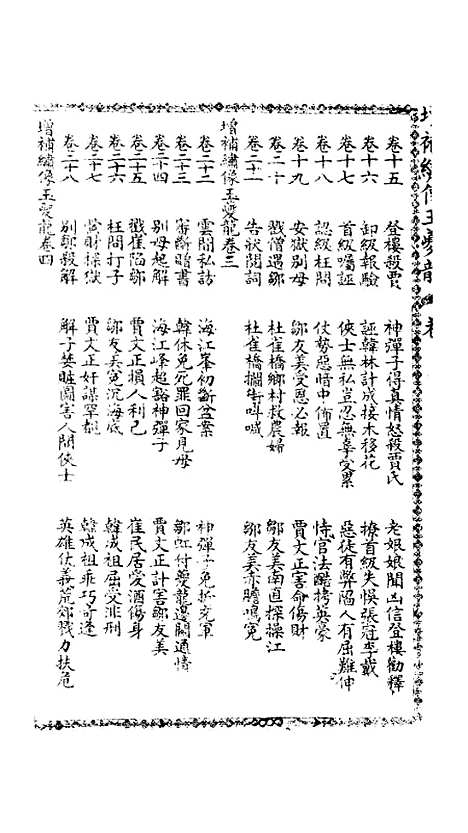 增補繡像玉夔龍 卷
卷十五 登樓殺賈 神彈子得真情怒殺賈氏 老娘娘聞凶信登樓勸釋
卷十六 卸級報驗 誣韓林計成接木移花 撩首級失悞張冠李戴
卷十七 首級囑誣 俠士無私豈忍無辜受累 惡徒有弊陷人有屈難伸
卷十八 認級枉問 仗勢惡暗中佈置 恃官法酷拷英豪
卷十九 安獄別母 鄒友美受恩必報 賈文正害命傷財
卷二十 戲僧遇鄒 杜雀橋鄉村救農婦 鄒友美南直探操江
卷二十一 告狀閱詞 杜雀橋攔街叫喊 鄒友美赤膽鳴冤
增補繡像玉夔龍卷三
卷二十二 雲間私訪 海江峯初斷盆案 神彈子免抵充軍
卷二十三 審斷暗書 韓休免死罪回家見母 鄒虹付夔龍邊關通情
卷二十四 別母起解 海江峰超豁神彈子 賈文正計害鄒友美
卷二十五 戳崔陷鄒 賈文正損人利己 崔民居愛酒傷身
卷二十六 枉問打子 鄒友美冤沉海底 韓成祖屈受非刑
卷二十七 賞財探獄 賈文正奸謀罕都 韓成祖乖巧奇逢
卷二十八 別鄒殺解 解子婪賍圖害人間俠士 英雄仗義荒郊戮力扶危
增補繡像玉夔龍卷四